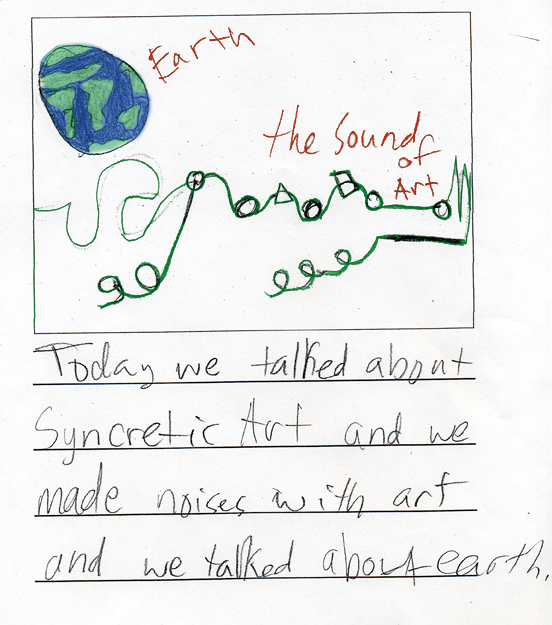 Earth
the Sound
of
Art
Today we talked about
Syncretic Art and we
made noises with art
and we talked about earth.